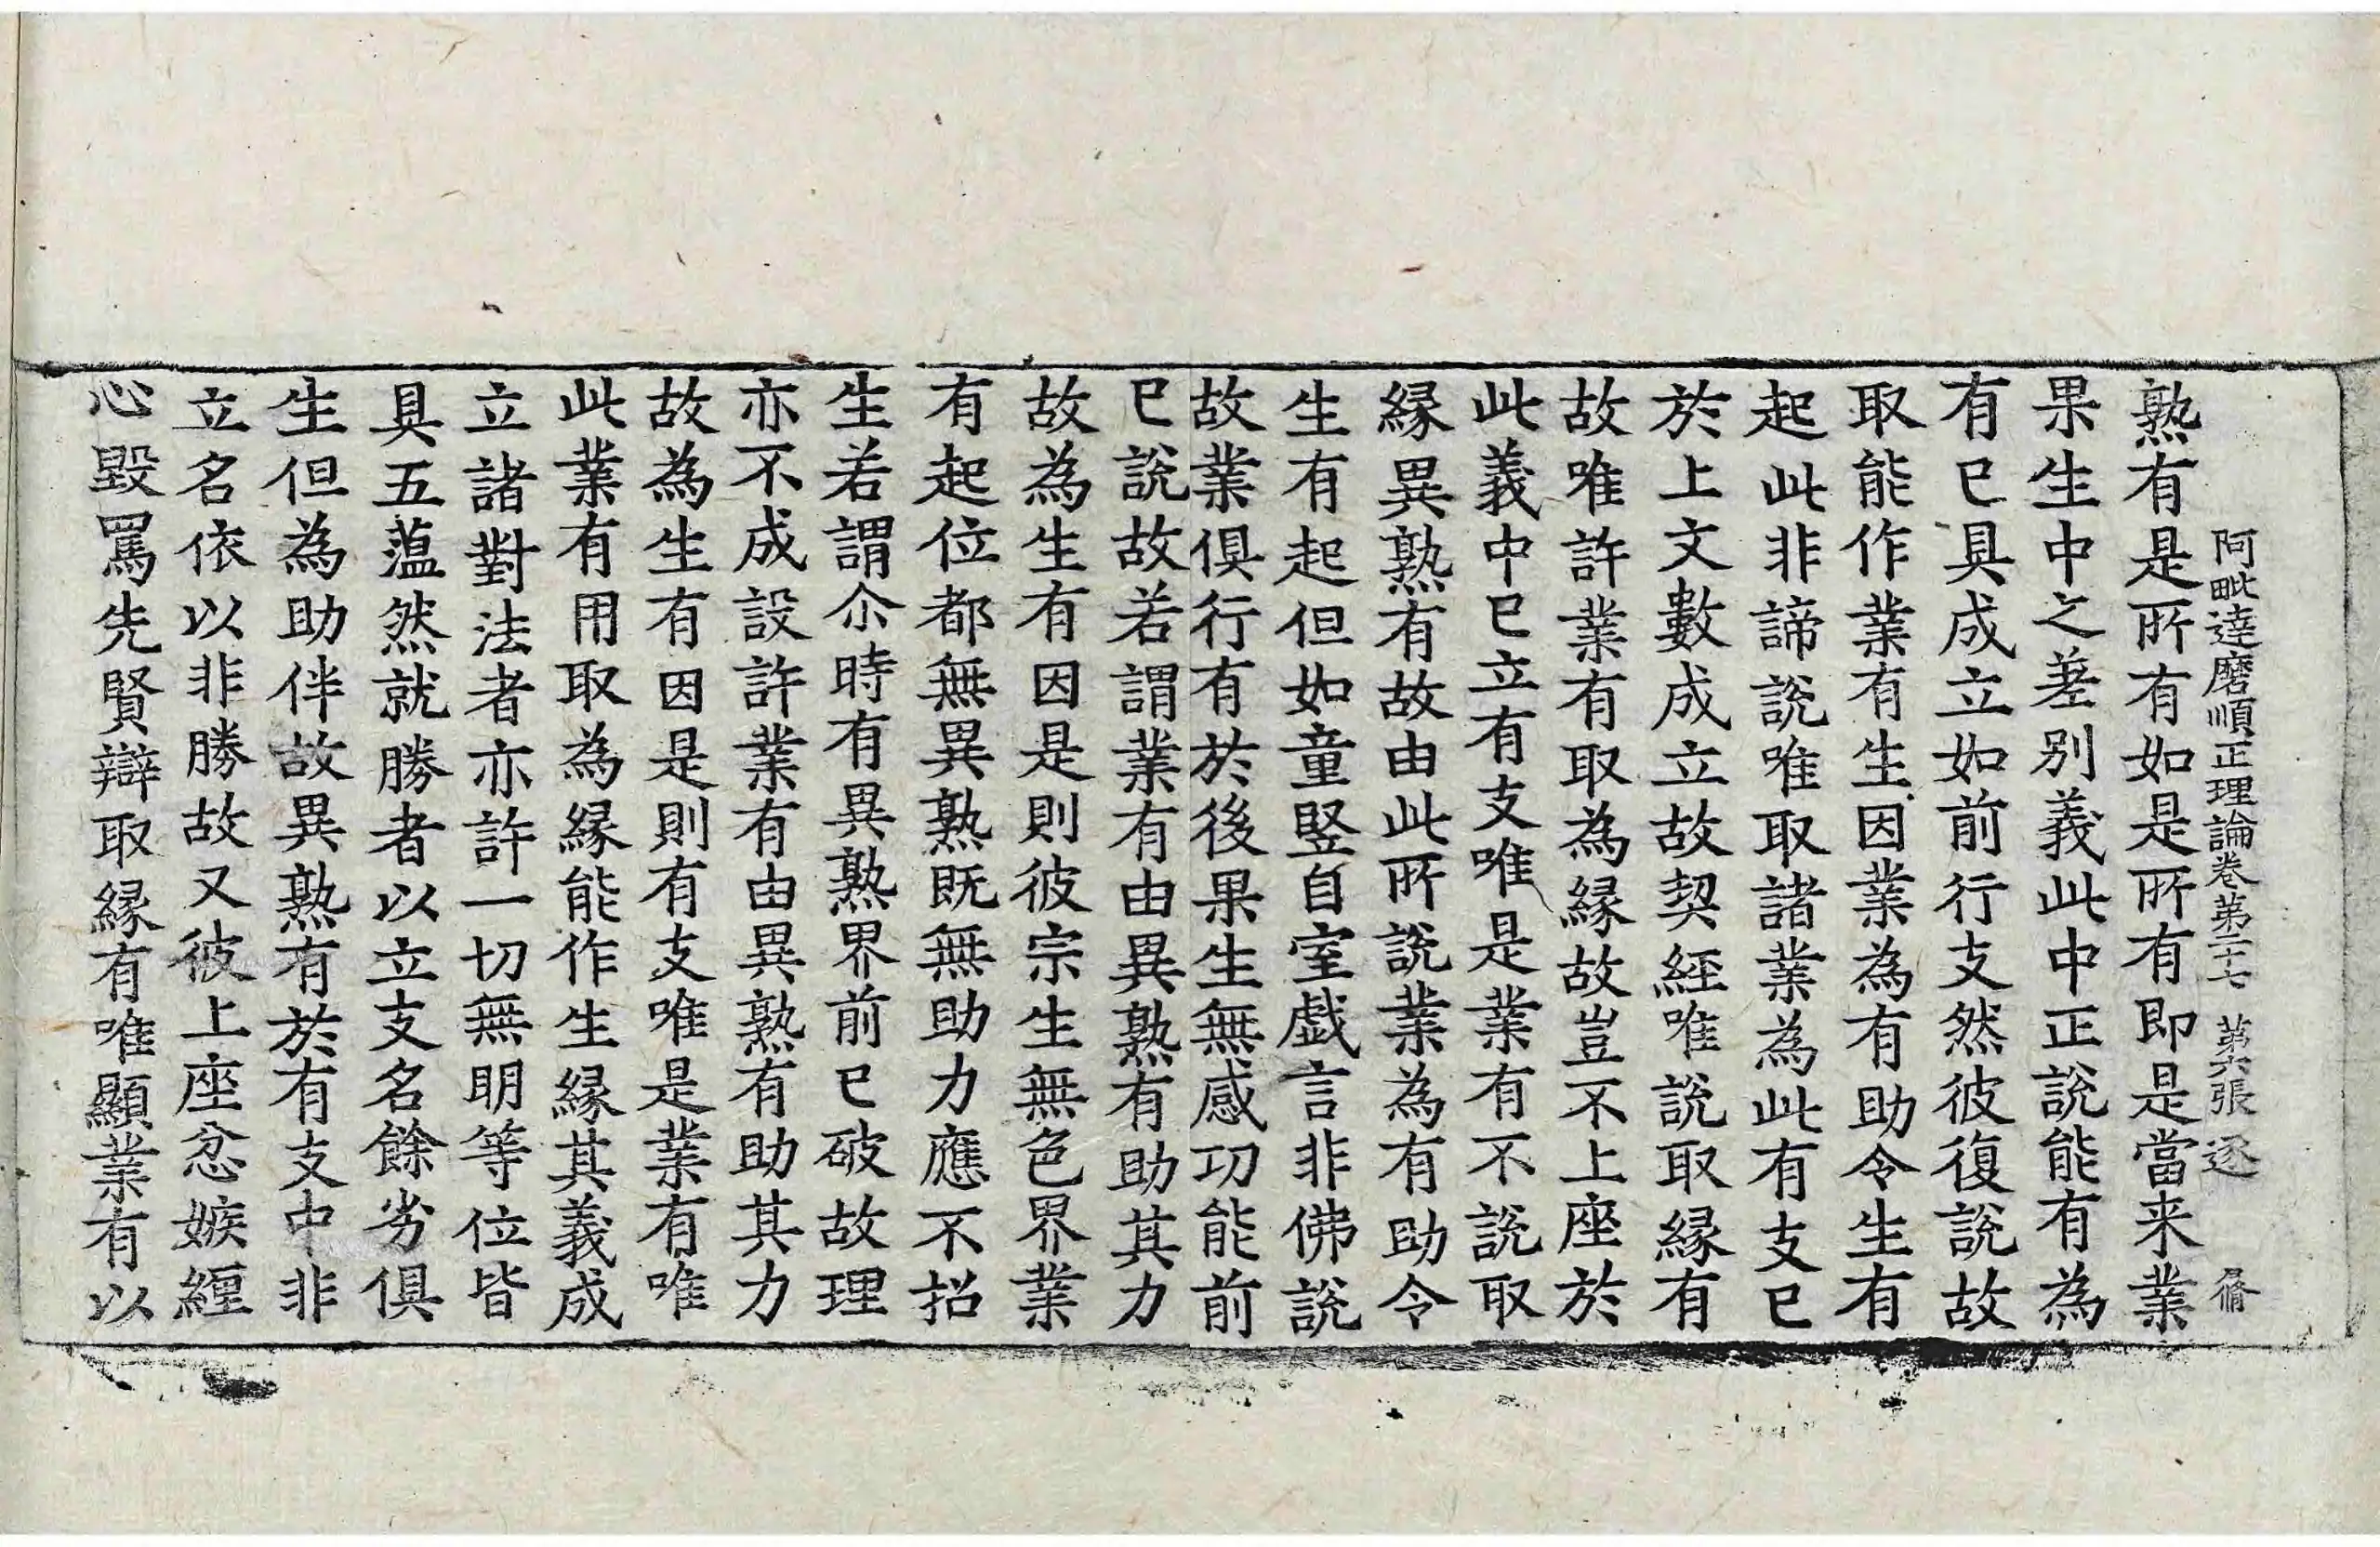 阿毗達磨順正理論卷第二十七　第六張　逐
熟有是所有如是所有即是當来業
果生中之差别義此中正說能有為
有已具成立如前行支然彼復說故
取能作業有生因業為有助令生有
起此非諦說唯取諸業為此有支已
於上文數成立故契經唯說取縁有
故唯許業有取為縁故豈不上座於
此義中已立有支唯是業有不說取
縁異熟有故由此所說業為有助令
生有起但如童竪自室戱言非佛說
故業俱行有於後果生無感功能前
已說故若謂業有由異熟有助其力
故為生有因是則彼宗生無色界業
有起位都無異熟既無助力應不招
生若謂尒時有異熟界前已破故理
亦不成設許業有由異熟有助其力
故為生有因是則有支唯是業有唯
此業有用取為縁能作生縁其義成
立諸對法者亦許一切無明等位皆
具五藴然就勝者以立支名餘劣俱
生但為助伴故異熟有於有支中非
立名依以非勝故又彼上座忿嫉纒
心毀罵先賢辯取縁有唯顯業有以